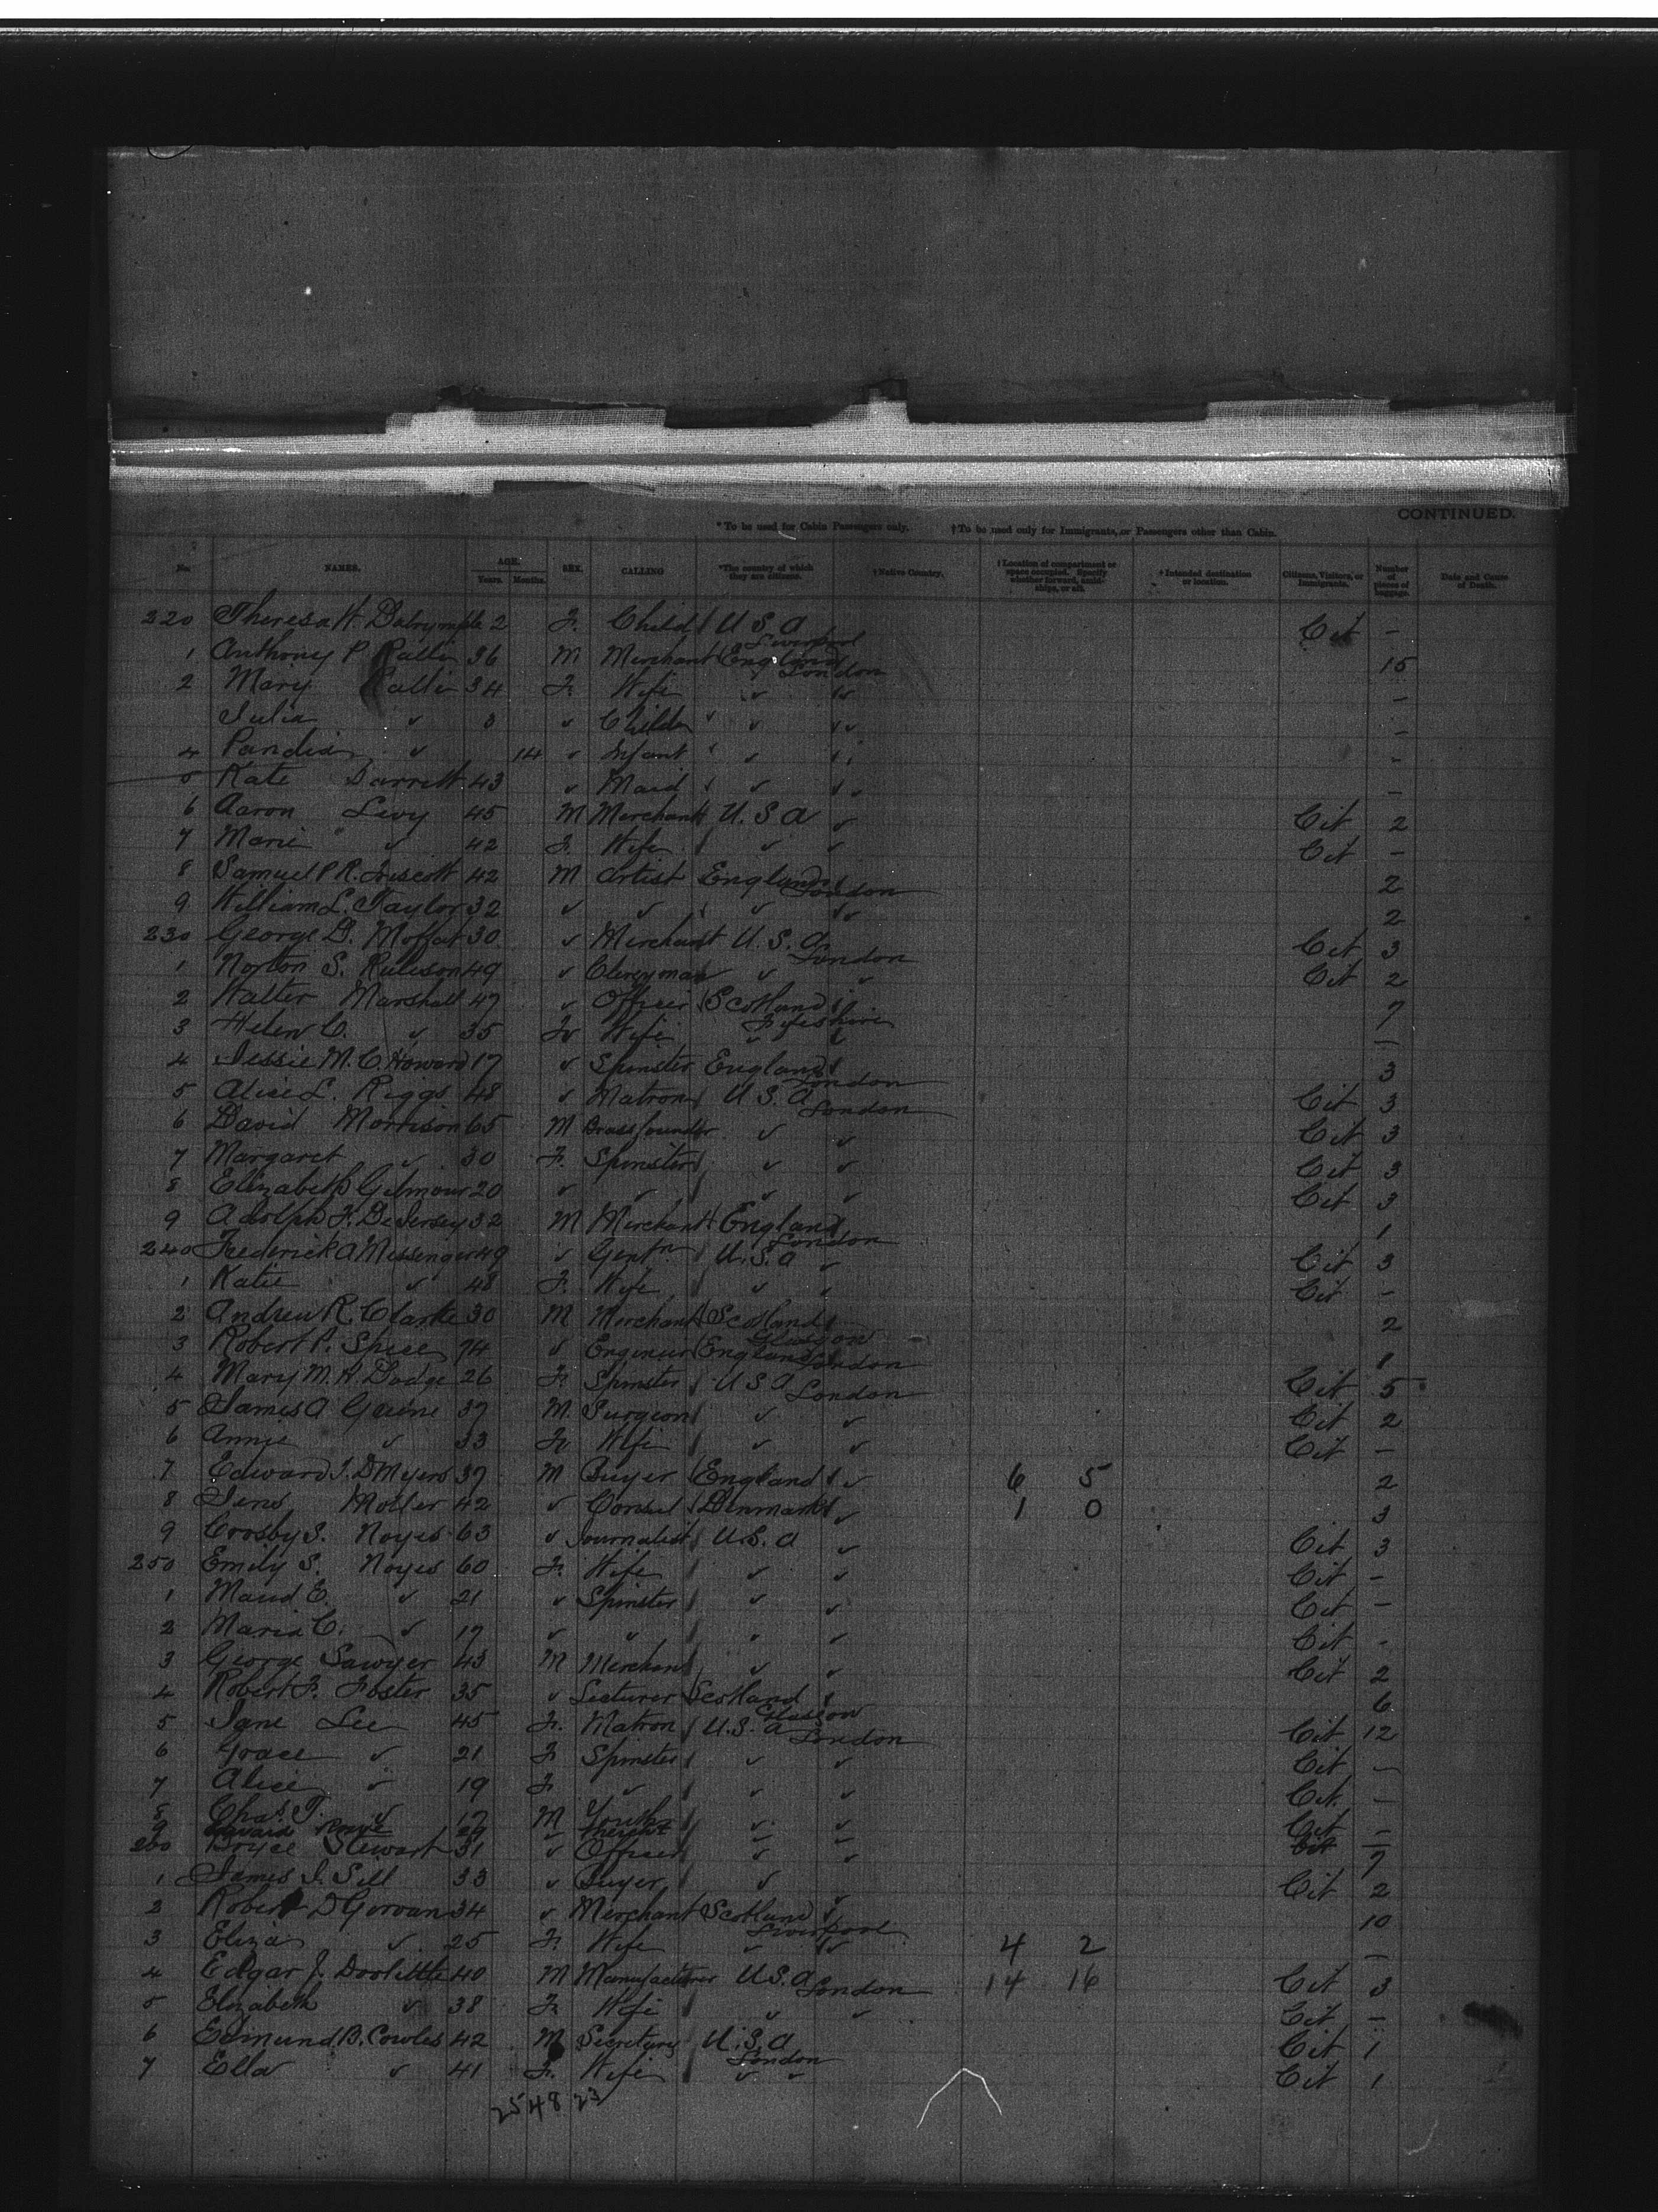 CONTINUED.
*To be used for Cabin Passengers only. †To be used only for Immigrants, or Passengers other than Cabin.
No. NAMES. AGE. Years. Months. SEX. CALLING *The country of which they are citizens. †Native Country. †Location of compartment or space occupied. Specify whether forward, amidships, or aft. †Intended destination or location. Citizens, Visitors, or Immigrants. Number of pieces of luggage. Date and Cause of Death.
220 Theresa H Dalrymple 2 F. Child U S A Cit -
1 Anthony P Ralli 36 M Merchant England Liverpool London 15
2 Mary Ralli 34 F. Wife " " -
Julia " " " " -
4 Pandia " 14 " Infant " " -
5 Kate Barrett 43 " Maid " " -
6 Aaron Levy 45 M Merchant U. S A " Cit 2
7 Marie " 42 F. Wife " " Cit -
8 Samuel P R. 42 M Artist England London 2
9 William L. Taylor 32 " " " " 2
230 George D. Moffat 30 " Merchant U. S. A London Cit 3
1 Norton S. Rulison 49 " Clergyman " " Cit 2
2 Walter Marshall 47 " Officer Scotland 7
3 Helen C. " 35 F Wife Fifeshire " -
4 Jessie M. C. Howard 17 " Spinster England London 3
5 Alice L. Riggs 48 " Matron U. S. A London Cit 3
6 David Morrison 65 M Brassfounder " " Cit 3
7 Margaret " 30 F. Spinster " " Cit 3
8 Elizabeth Gilmour 20 " " " " Cit 3
9 Adolph F. De Jersey 32 M Merchant England London 1
240 Frederick A Messenger 49 " Gentn U. S. A " Cit 3
1 Katie " 48 F. Wife " " Cit -
2 Andrew R. Clarke 30 M Merchant Scotland Glasgow 2
3 Robert P. Spice 74 " Engineer England London 1
4 Mary M. H. Dodge 26 F. Spinster U S A London Cit 5
5 James A 37 M. Surgeon " " Cit 2
6 Annie " 33 F Wife " " Cit -
7 Edward J. D Myers 37 M Buyer England " 6 5 2
8 Jens Moller 42 " Consul Denmark " 1 0 3
9 Crosby S. Noyes 63 " Journalist U. S. A " Cit 3
250 Emily S. Noyes 60 F. Wife " " Cit -
1 Maud E. " 21 " Spinster " " Cit -
2 Maria C. " 17 " " " " Cit -
3 George Sawyer 43 M Merchant " " Cit 2
4 Robert F. Foster 35 " Lecturer Scotland Glasgow 6
5 Jane Lee 45 F. Matron U. S. A London Cit 12
6 Grace " 21 F Spinster " " Cit -
7 Alice " 19 F " " " Cit. -
8 Chas. T. " 17 M Youth " " Cit -
9 Edward 29 " " " Cit -
260 Boyce Stewart 31 " Officer " " 7
1 James J. Sill 33 " Buyer " " Cit 2
2 Robert D Gorvan 34 " Merchant Scotland Liverpool 10
3 Eliza " 25 F. Wife " " 4 2 -
4 Edgar J. Doolittle 40 M Manufacturer U. S. A London 14 16 Cit 3
5 Elizabeth " 38 F. Wife " " Cit -
6 Edmund B. Cowles 42 M Secretary U. S. A London Cit 1
7 Ella " 41 F. Wife " " Cit 1
25 48 23